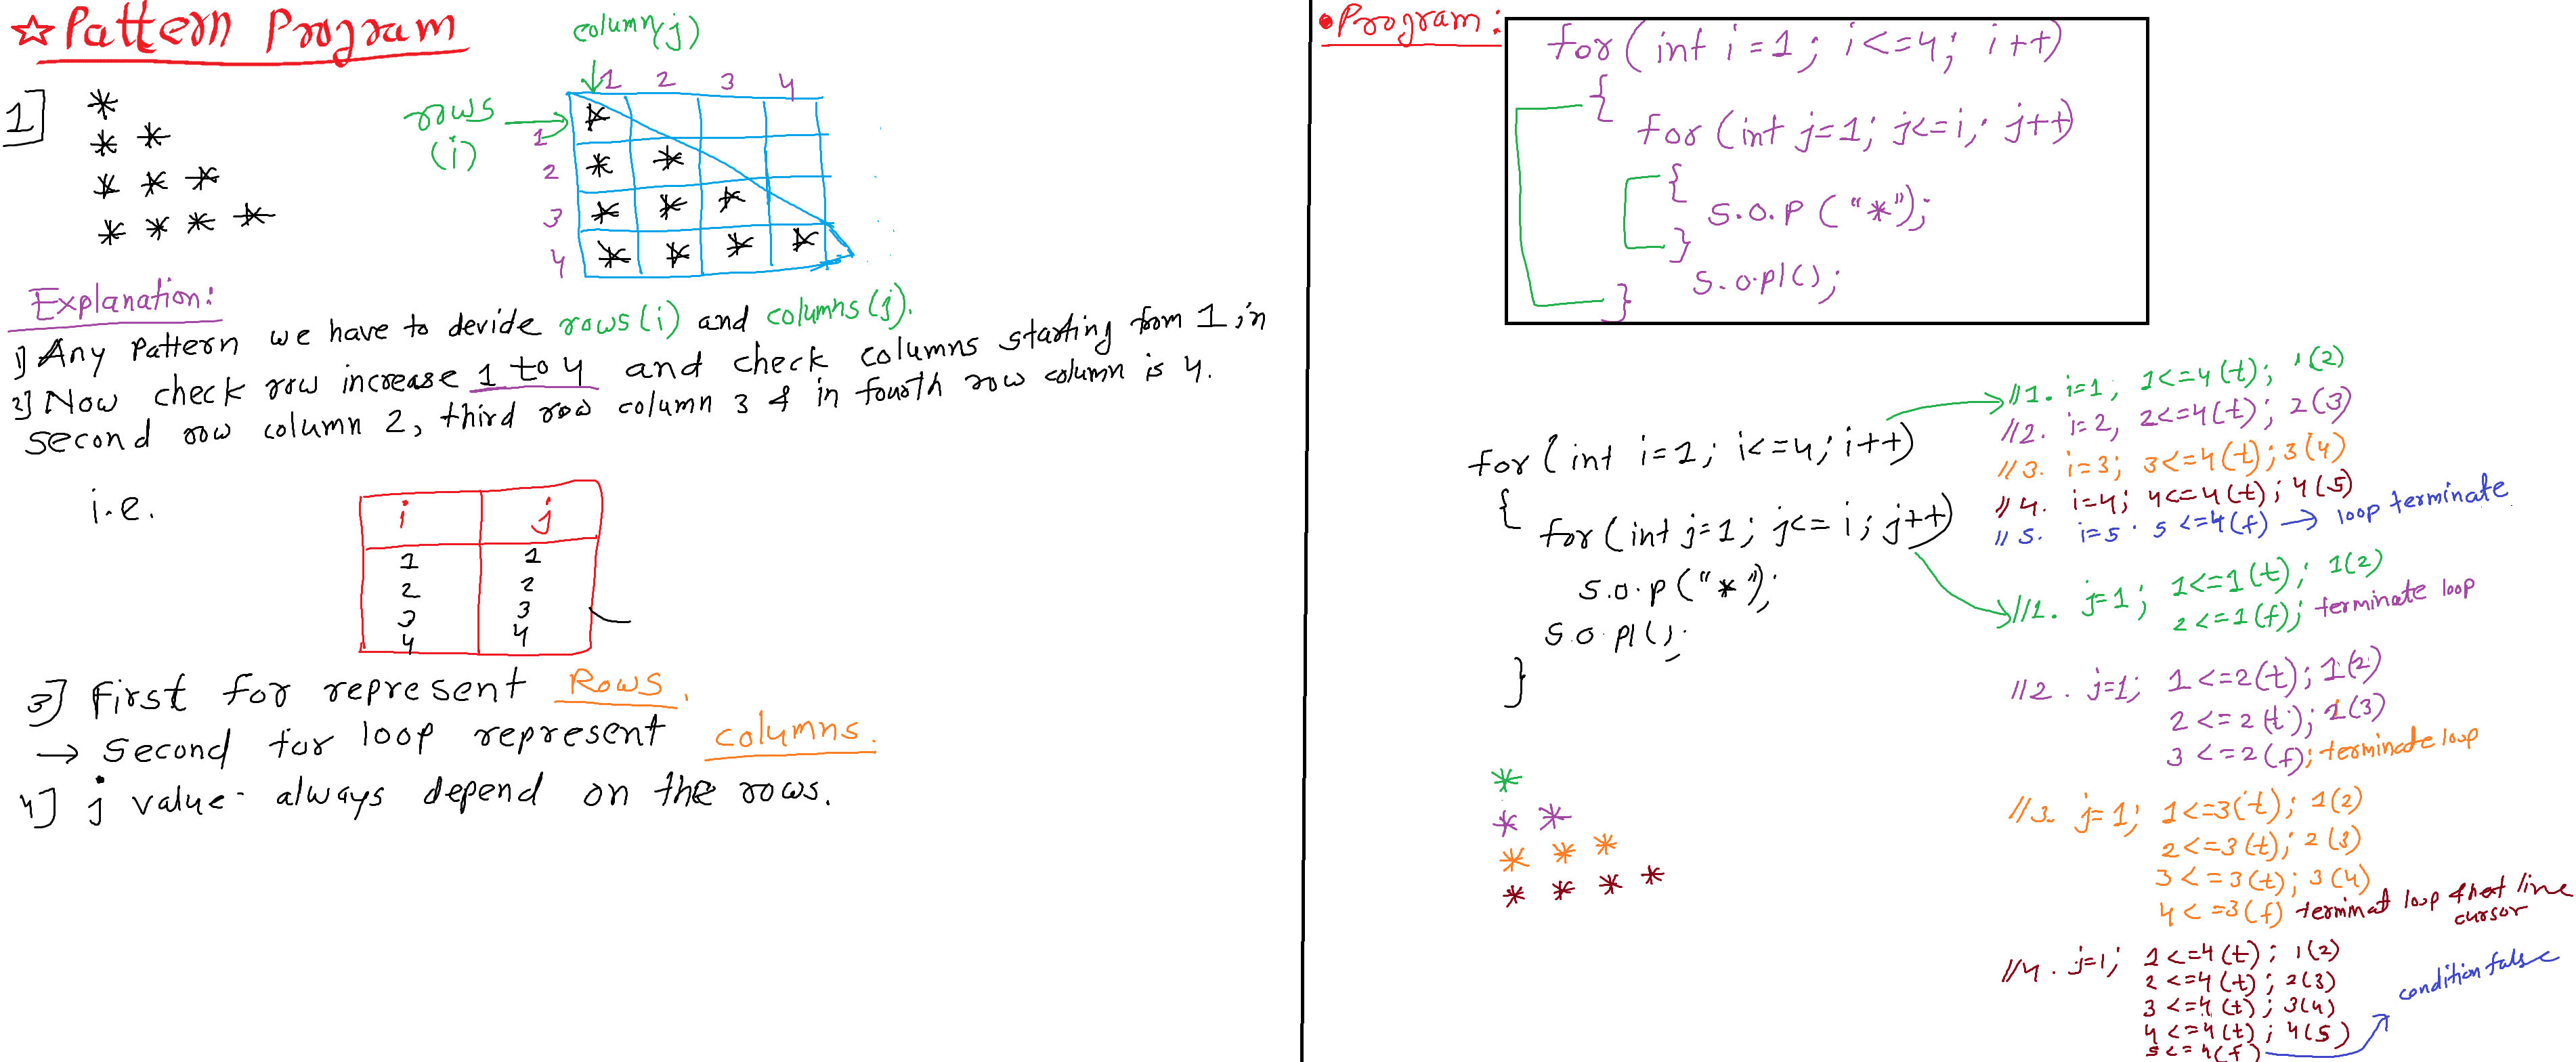 ☆ Pattern Program
column(j)
1 2 3 4
rows
(i)
1
2
3
4
1] *
* *
* * *
* * * *
*
* *
* * *
* * * *
Explanation:
1) Any Pattern we have to devide rows(i) and columns(j).
2) Now check row increase 1 to 4 and check columns starting from 1, in
second row column 2, third row column 3 & in fourth row column is 4.
i.e.
i j
1 1
2 2
3 3
4 4
3] First for represent Rows.
→ Second for loop represent columns.
4] j value always depend on the rows.
• Program:
for(int i=1; i<=4; i++)
{
for(int j=1; j<=i; j++)
{
S.O.P("*");
}
S.O.Pl();
}
for(int i=1; i<=4; i++)
{
for(int j=1; j<=i; j++)
S.O.P("*");
S.O.Pl();
}
//1. i=1; 1<=4(t); 1(2)
//2. i=2, 2<=4(t); 2(3)
//3. i=3; 3<=4(t); 3(4)
//4. i=4; 4<=4(t); 4(5)
//5. i=5 . 5<=4(f) → loop terminate
//1. j=1; 1<=1(t); 1(2)
2<=1(f); terminate loop
//2. j=1; 1<=2(t); 1(2)
2<=2(t); 2(3)
3<=2(f); terminate loop
//3. j=1; 1<=3(t); 1(2)
2<=3(t); 2(3)
3<=3(t); 3(4)
4<=3(f) terminat loop & line
cursor
//4. j=1; 1<=4(t); 1(2)
2<=4(t); 2(3)
3<=4(t); 3(4)
4<=4(t); 4(5)
5<=4(f)
condition false
*
* *
* * *
* * * *